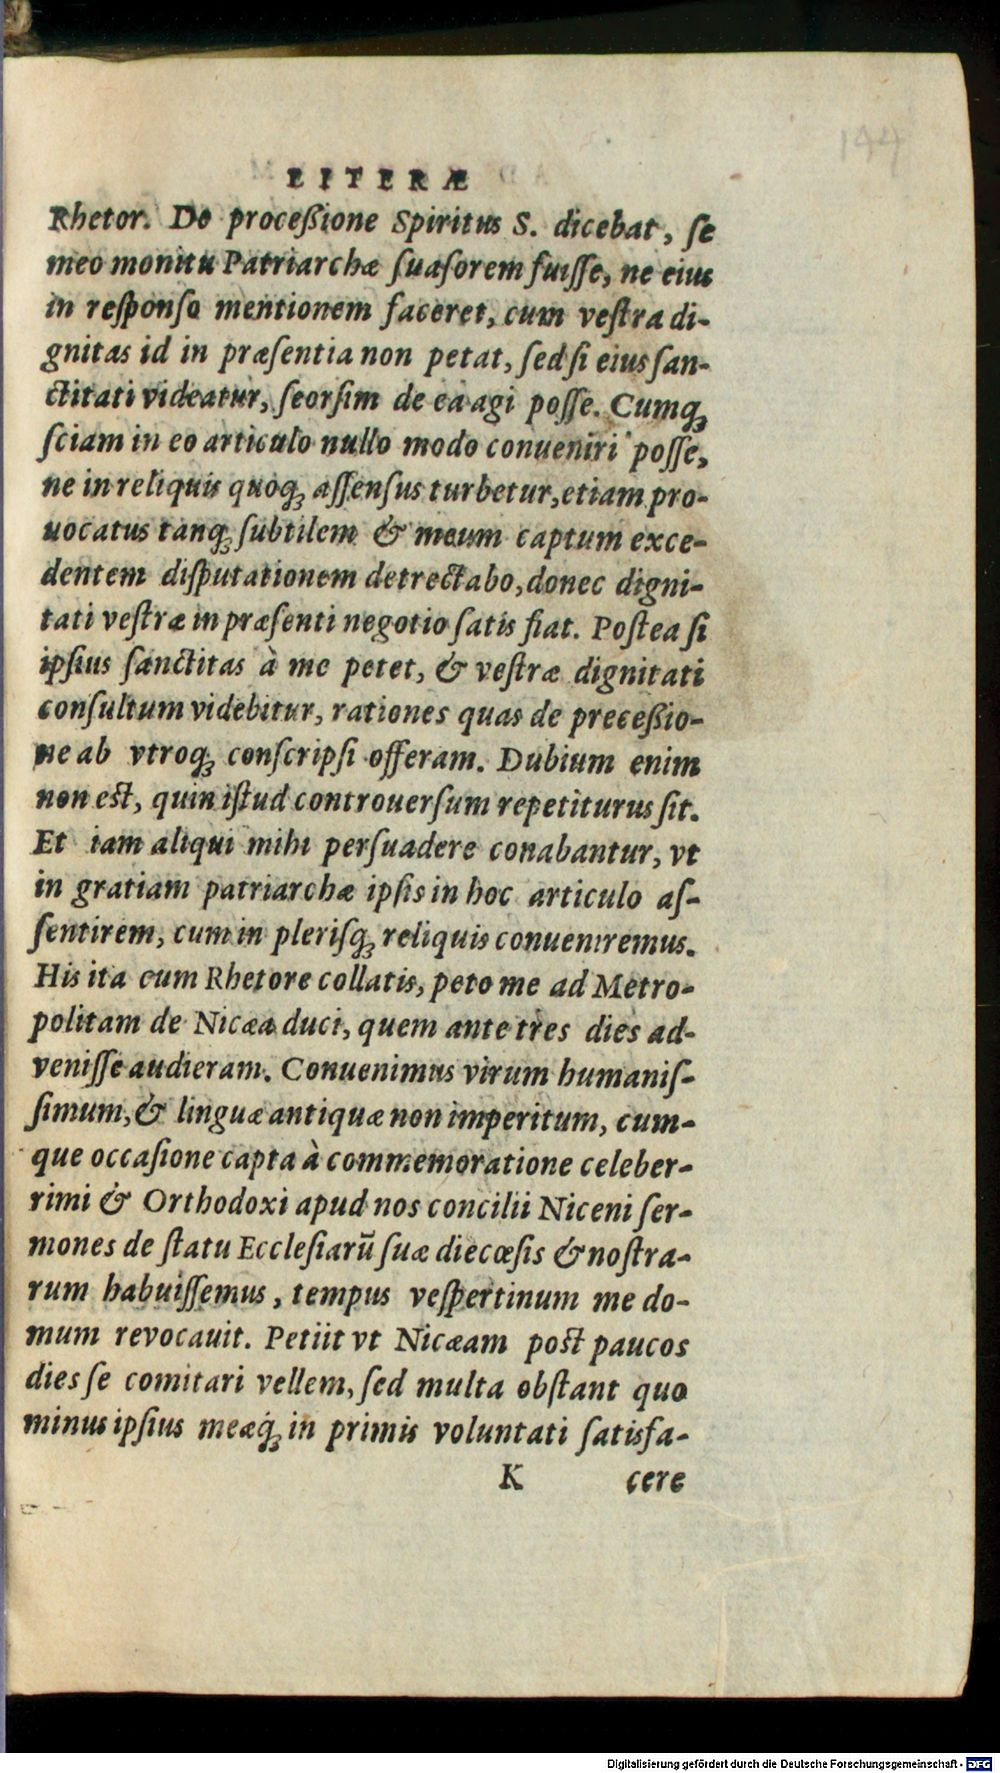 144
LITERÆ
Rhetor. De proceßione Spiritus S. dicebat, ſe
meo monitu Patriarchæ ſuaſorem fuiſſe, ne eius
in reſponſo mentionem faceret, cum veſtra di-
gnitas id in præſentia non petat, ſed ſi eius ſan-
ctitati videatur, ſeorſim de ea agi poſſe. Cumꝗ
ſciam in eo articulo nullo modo conueniri poſſe,
ne in reliquis quoꝗ aſſenſus turbetur, etiam pro-
uocatus tanꝗ ſubtilem & meum captum exce-
dentem diſputationem detrectabo, donec digni-
tati veſtræ in præſenti negotio ſatis fiat. Poſtea ſi
ipſius ſanctitas à me petet, & veſtræ dignitati
conſultum videbitur, rationes quas de preceßio-
ne ab vtroꝗ conſcripſi offeram. Dubium enim
non est, quin iſtud controuerſum repetiturus ſit.
Et iam aliqui mihi perſuadere conabantur, vt
in gratiam patriarchæ ipſis in hoc articulo aſ-
ſentirem, cum in pleriſꝗ reliquis conueniremus.
His ita cum Rhetore collatis, peto me ad Metro-
politam de Nicæa duci, quem ante tres dies ad-
veniſſe audieram. Conuenimus virum humaniſ-
ſimum, & linguæ antiquæ non imperitum, cum-
que occaſione capta à commemoratione celeber-
rimi & Orthodoxi apud nos concilii Niceni ſer-
mones de ſtatu Eccleſiarū ſuæ diecœſis & noſtra-
rum habuiſſemus, tempus veſpertinum me do-
mum revocauit. Petiit vt Nicæam post paucos
dies ſe comitari vellem, ſed multa obſtant quo
minus ipſius meæꝗ́ in primis voluntati ſatisfa-
K cere
Digitalisierung gefördert durch die Deutsche Forschungsgemeinschaft - DFG